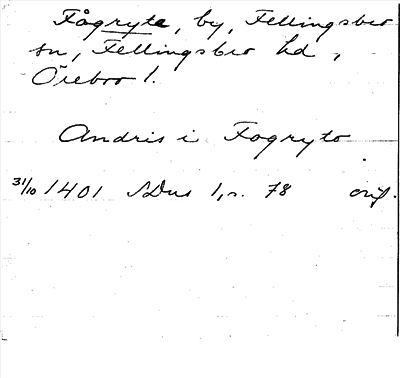 Fågryte, by, Fellingsbro
sn, Fellingsbro hd,
Örebro l.
Andris i Fogryto
31/10 1401 SDns 1, s. 78 orig.